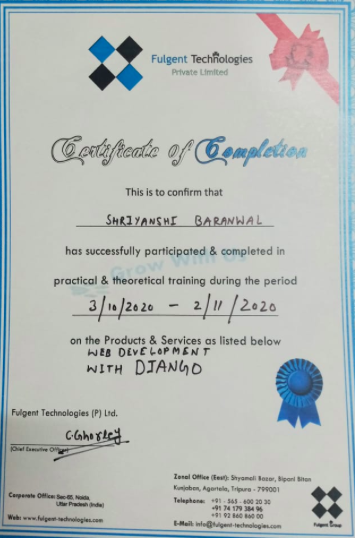 Fulgent Technologies
Private Limited
Certificate of Completion
This is to confirm that
SHRIYANSHI BARANWAL
has successfully participated & completed in
Grow With Us
practical & theoretical training during the period
3/10/2020 – 2/11/2020
on the Products & Services as listed below
WEB DEVELOPMENT
WITH DJANGO
Fulgent Technologies (P) Ltd.
(Chief Executive Officer)
Corporate Office: Sec-65, Noida,
Uttar Pradesh (India)
Web: www.fulgent-technologies.com
Zonal Office (East): Shyamali Bazar, Bipani Bitan
Kunjaban, Agartala, Tripura - 799001
Telephone: +91 - 565 - 600 20 20
+91 74 179 384 96
+91 92 860 860 00
E-Mail: info@fulgent-technologies.com
Fulgent Group